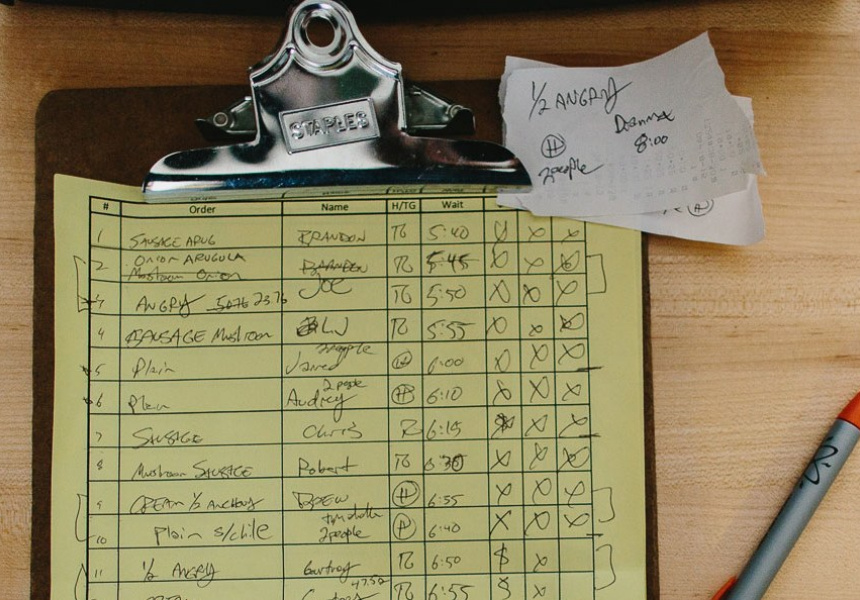 STAPLES
1/2 ANGRY
8:00
H
2 people
# Order Name H/TG Wait
1 SAUSAGE ARUG BRANDON TG 5:40 X X
2 ONION ARUGULA BRANDON TG 5:45 X X X
Mushroom Onion
3 ANGRY Joe TG 5:50 X X X
4 SAUSAGE Mushroom TG 5:55 X X X
2 people
5 Plain Jared H 6:00 X X X
2 people
6 Plain Audrey H 6:10 X X X
7 SAUSAGE Chris 6:15 X X X
8 Mushroom SAUSAGE Robert TG 6:30 X X X
9 1/2 ANCHOVY DREW H 6:55 X X X
10 Plain s/chile 2 people H 6:40 X X X
11 1/2 ANGRY TG 6:50 $ X
47.50
TG 6:55 $ X